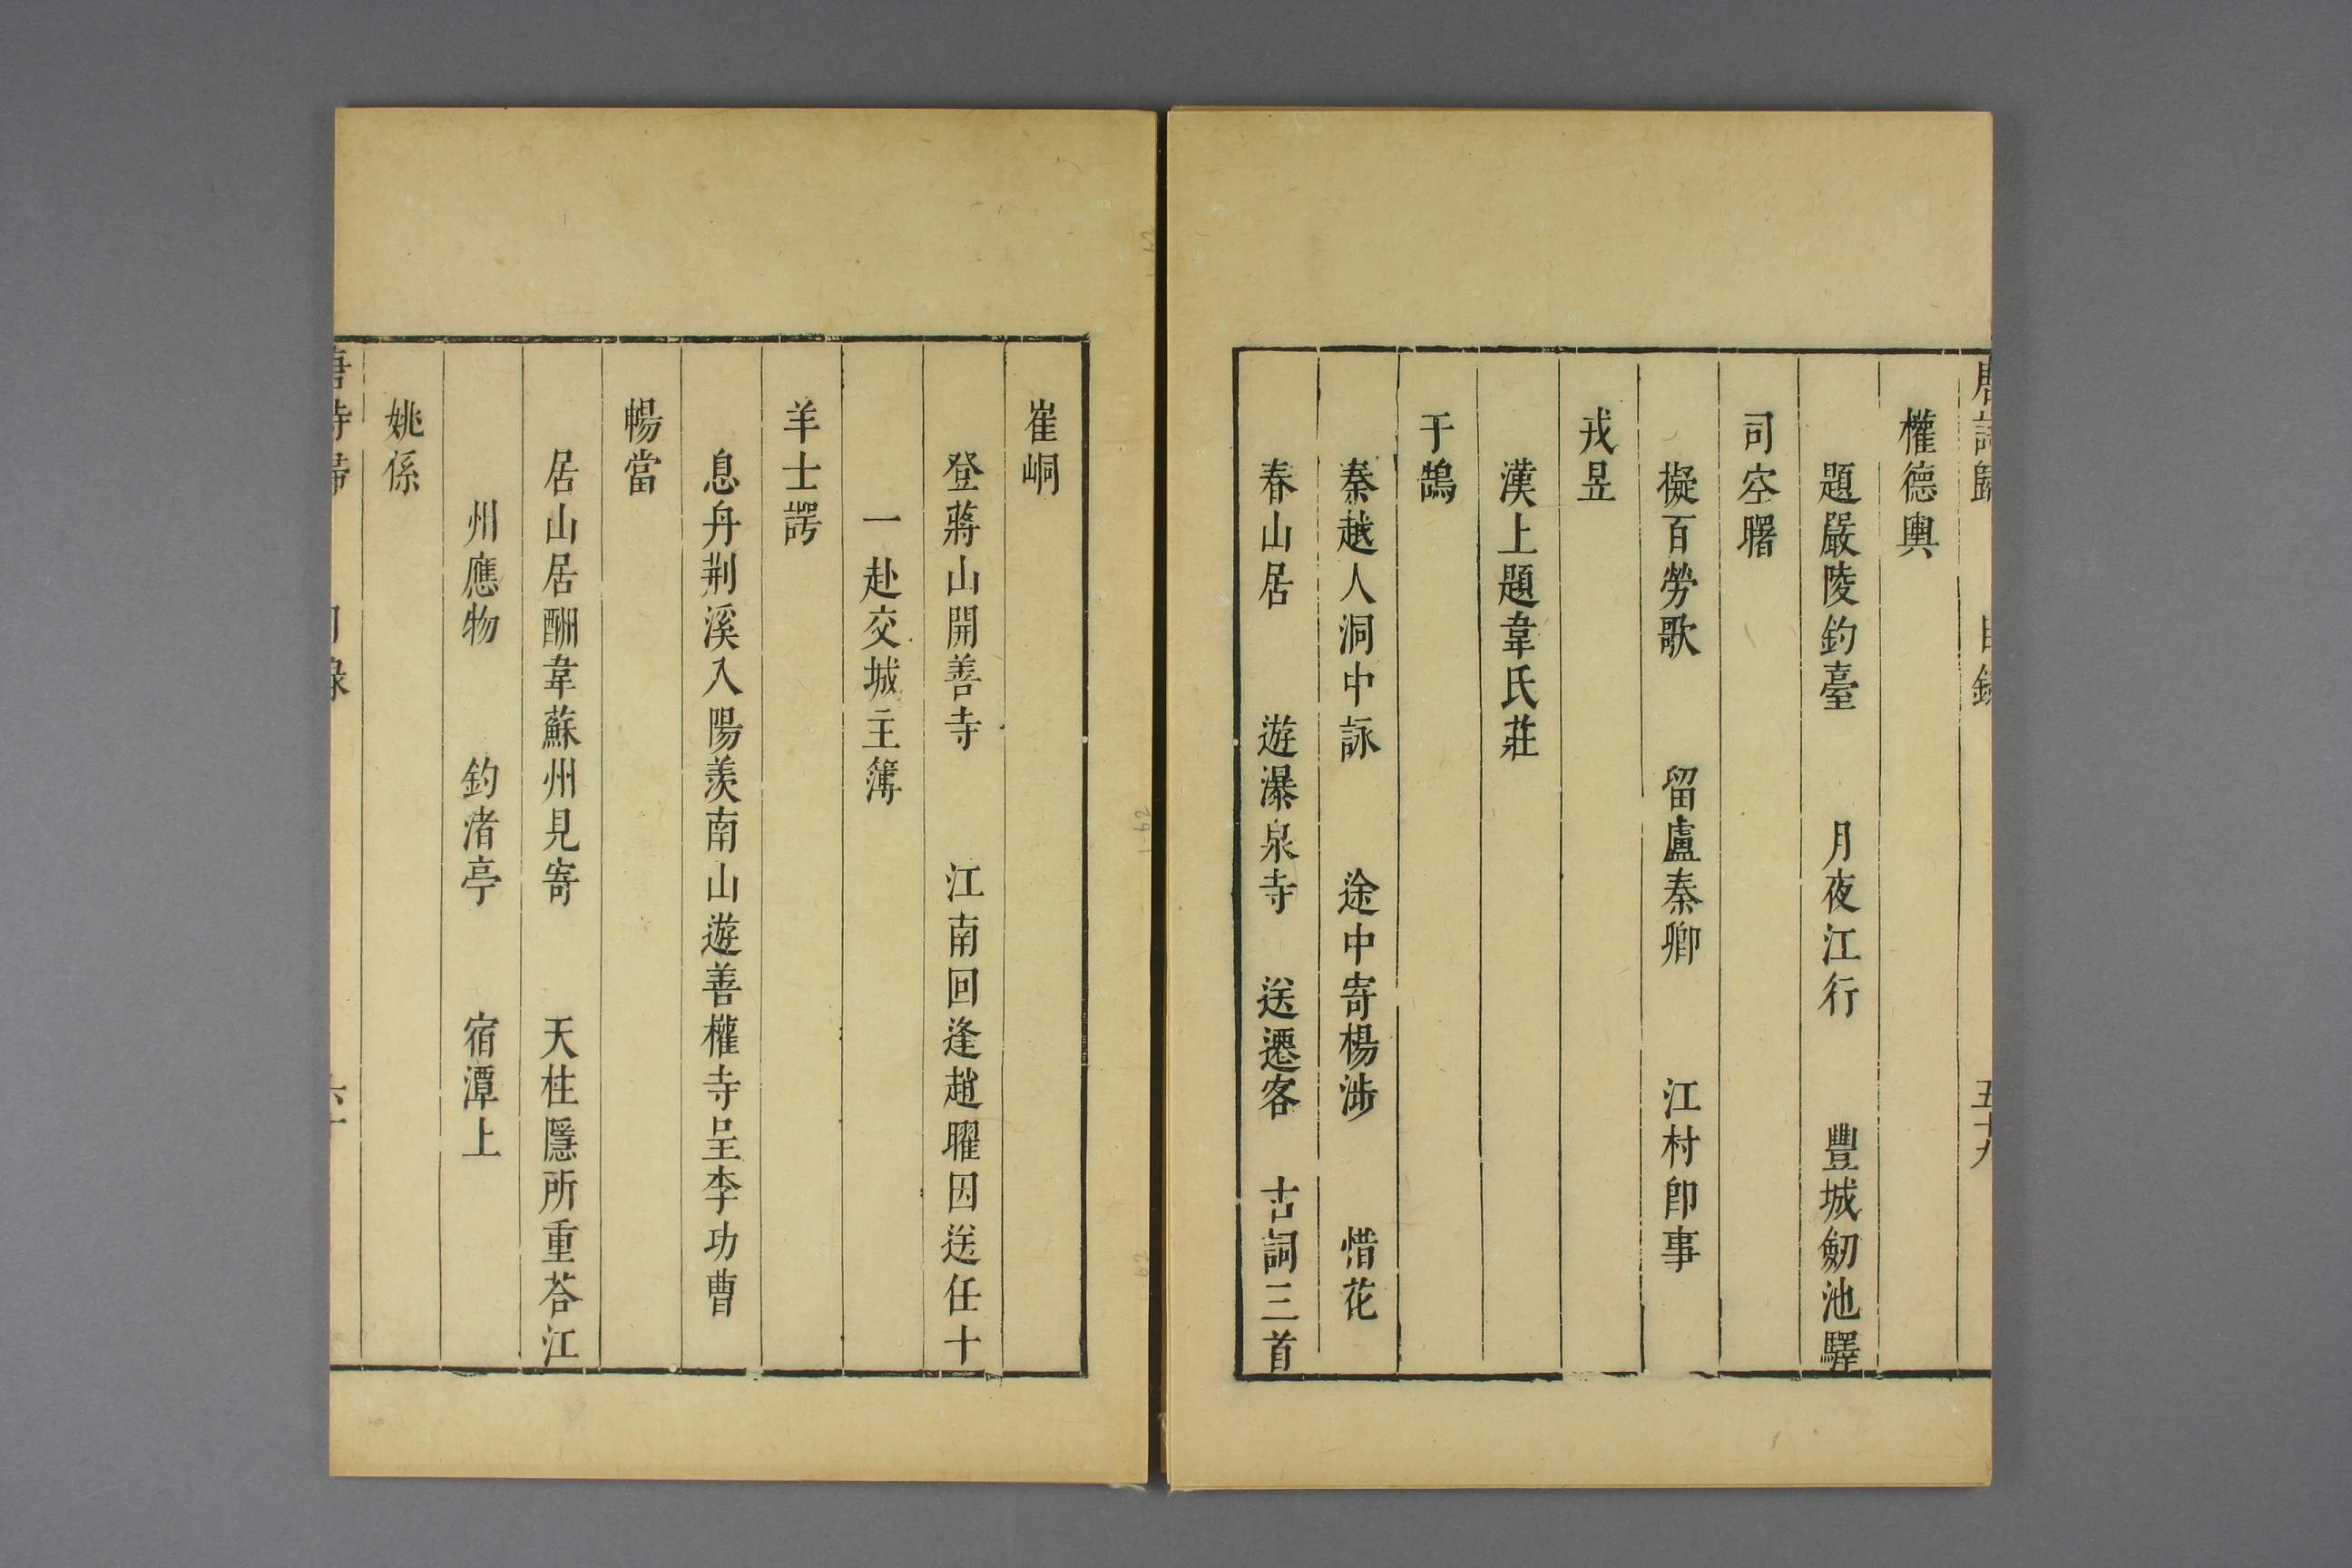 唐詩歸　目錄　五十九
權德輿
題嚴陵釣臺　月夜江行　豐城劒池驛
司空曙
擬百勞歌　留盧秦卿　江村卽事
戎昱
漢上題韋氏莊
于鵠
秦越人洞中詠　途中寄楊涉　惜花
春山居　遊瀑泉寺　送遷客　古詞三首
崔峒
登蔣山開善寺　江南回逢趙曜因送任十
一赴交城主簿
羊士諤
息舟荆溪入陽羨南山遊善權寺呈李功曹
暢當
居山居酬韋蘇州見寄　天柱隱所重荅江
州應物　釣渚亭　宿潭上
姚係
唐詩歸　目錄　六十